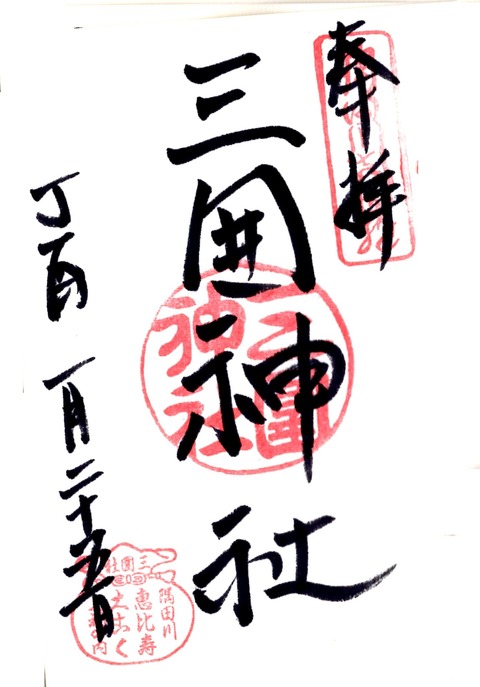 奉拝
三囲神社
丁酉 一月二十五日
三圍神社
隅田川
三圍社
恵比寿